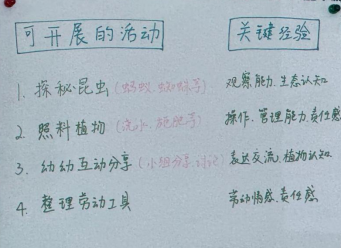 可开展的活动 关键经验
1. 探秘昆虫(蚂蚁、蚯蚓等) 观察能力、生态认知
2. 照料植物(浇水、施肥等) 操作、管理能力、责任感
3. 幼幼互动分享(小组分享、讨论) 表达交流、植物认知
4. 整理劳动工具 劳动情感、责任感